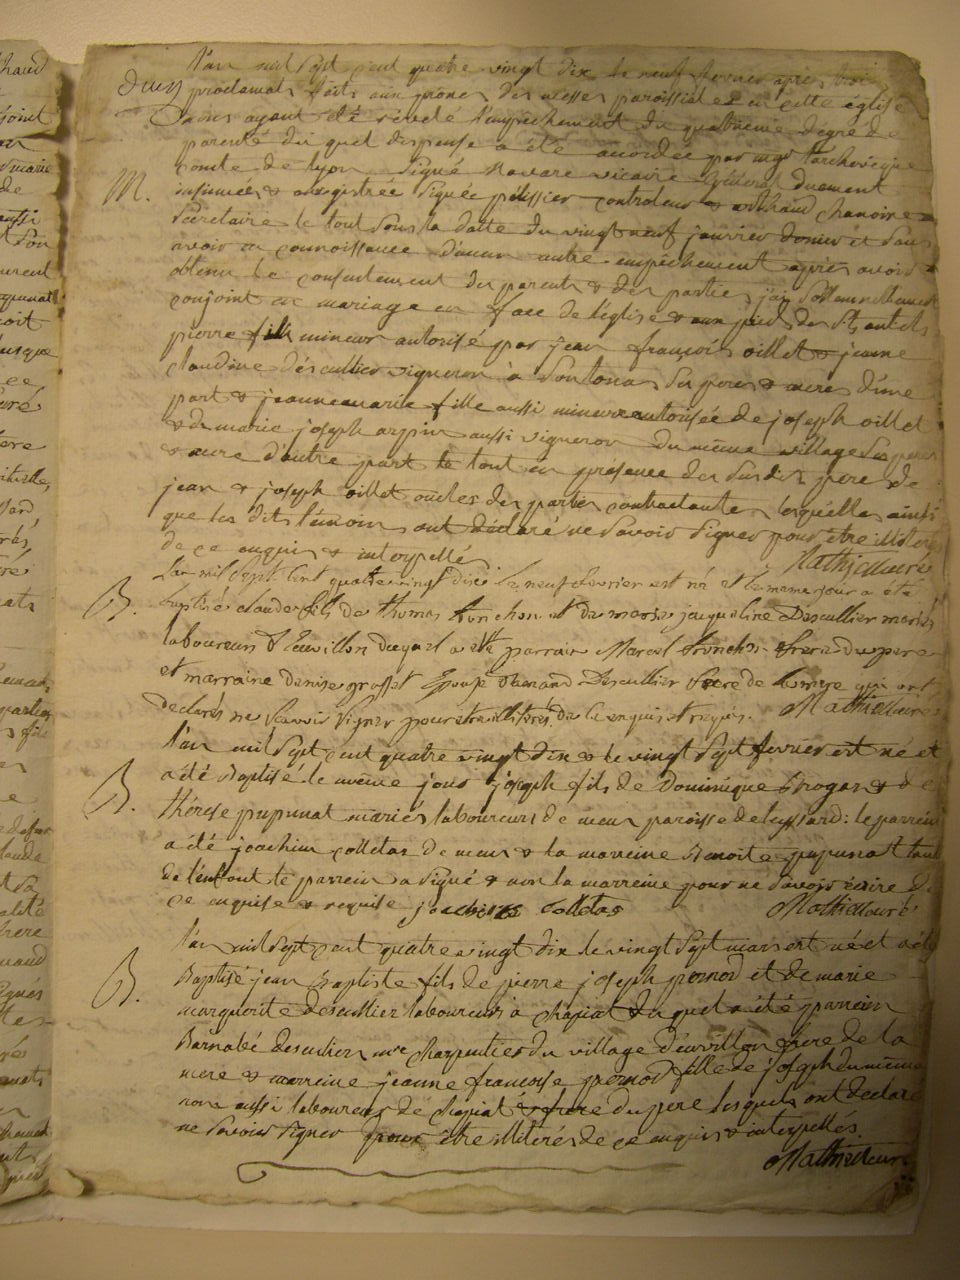 L'an mil sept cent quatre vingt dix le neuf fevrier après trois
proclamats faits aux prones des messes paroissiales en cette église
nous ayant été révélé l'empechement du quatrieme dégré de
parenté du quel dispense a été accordée par mgr l'archeveque
comte de lyon signé navare vicaire général duement
M.
insinuée & enregistrée signée pélissier controleur & chanoine
sécretaire le tout sous la datte du vingt neuf janvier dernier et sans
avoir eu connoissance d'aucun autre empêchement après avoir
obtenu le consentement des parents & des parties j'ai sollennellement
conjoint en mariage en face de l'église & aux pieds des Sts autels
pierre fils mineur autorisé par jean françois oillet & jeanne
claudine désculliers vigneron à ses pere & mere d'une
part & jeanne marie fille aussi mineure autorisée de joseph oillet
& de marie joseph arpin aussi vigneron du même village ses pere
& mere d'autre part le tout en présence des susdits pere & de
jean & joseph oillet oncles des parties contractantes lesquelles ainsi
que les dits témoins ont déclaré ne savoir signer pour être illiterés
de ce enquis & interpellés Mathieu curé
B.
L'an mil sept cent quatre vingt dix le neuf fevrier est né et le meme jour a été
baptisé claude fils de thomas et de marie jacqueline Desculliers mariés
laboureurs d'Euvillon duquel a été parrain Marcel frere du pere
et marraine denise grosset Epouse d'amand Desculliers frere de la mere qui ont
declarés ne scavoir signer pour etre illiterés de ce enquis et requis. Mathieu curé
B.
l'an mil sept cent quatre vingt dix & le vingt sept fevrier est né et
a été Baptisé le meme jour joseph fils de Dominique Brogas & de
thérese pupunat mariés laboureurs de meur paroisse de leyssard: le parrein
a été joachim colletas de meur & la marreine Benoite pupunat tante
de l'enfant le parrein a signé & non la marreine pour ne savoir écrire de
ce enquise & requise joachim colletas Mathieu curé
B.
l'an mil sept cent quatre vingt dix le vingt sept mars est né et a été
Baptisé jean Baptiste fils de pierre joseph pernod et de marie
marguerite desculliers laboureurs à chapiat duquel a été parrein
Barnabé desculliers me charpentier du village d'euvillon frere de la
mere & marreine jeanne françoise pernod fille de joseph du même
nom aussi laboureur de chapiat & frere du pere lesquels ont declaré
ne savoir signer pour être illiterés de ce enquis & interpellés.
Mathieu curé